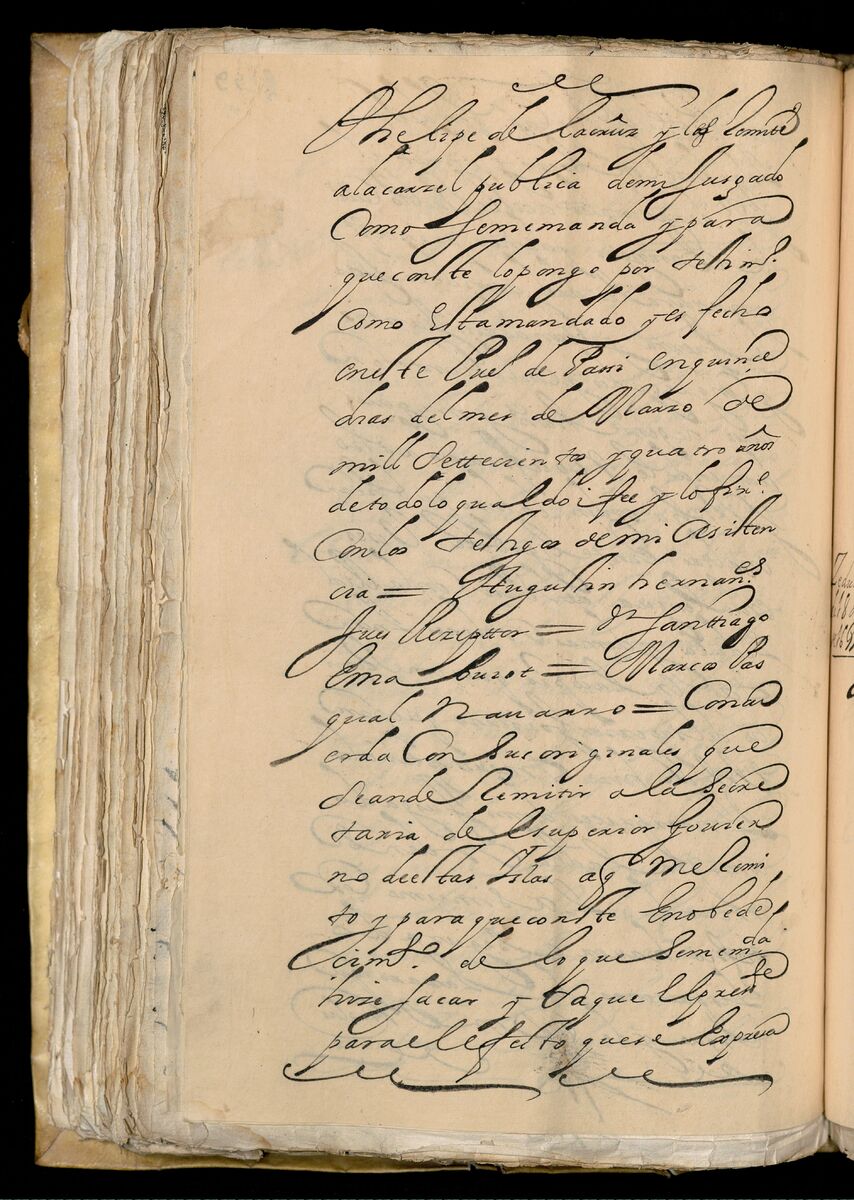 Phelipe de la cruz y los Remite
ala carzel publica demi Jusgado
Como Sememanda y para
que conste lo pongo por testimo.
Como Esta mandado y es fecho
eneste Puel de Pasi enquince
dias del mes de Marzo de
mill Settecientos y quatro años
de todo lo qual doi fee y lo firme.
Con los testigos de mi Asisten
cia = Augustin hernan.es
Jues Rezepttor = dn Santtiago
Ema = Marcos Pas
qual Navarro = Concu
erda Con Sus originales que
Seande Remitir a la Secre
taria de el superior Gouier
no de estas Islas aq me Remi
to y para que conste En obede
cimto. de lo que Sememda
hize Sacar y Saque El presente
para el efecto que se Expresa
Zedu